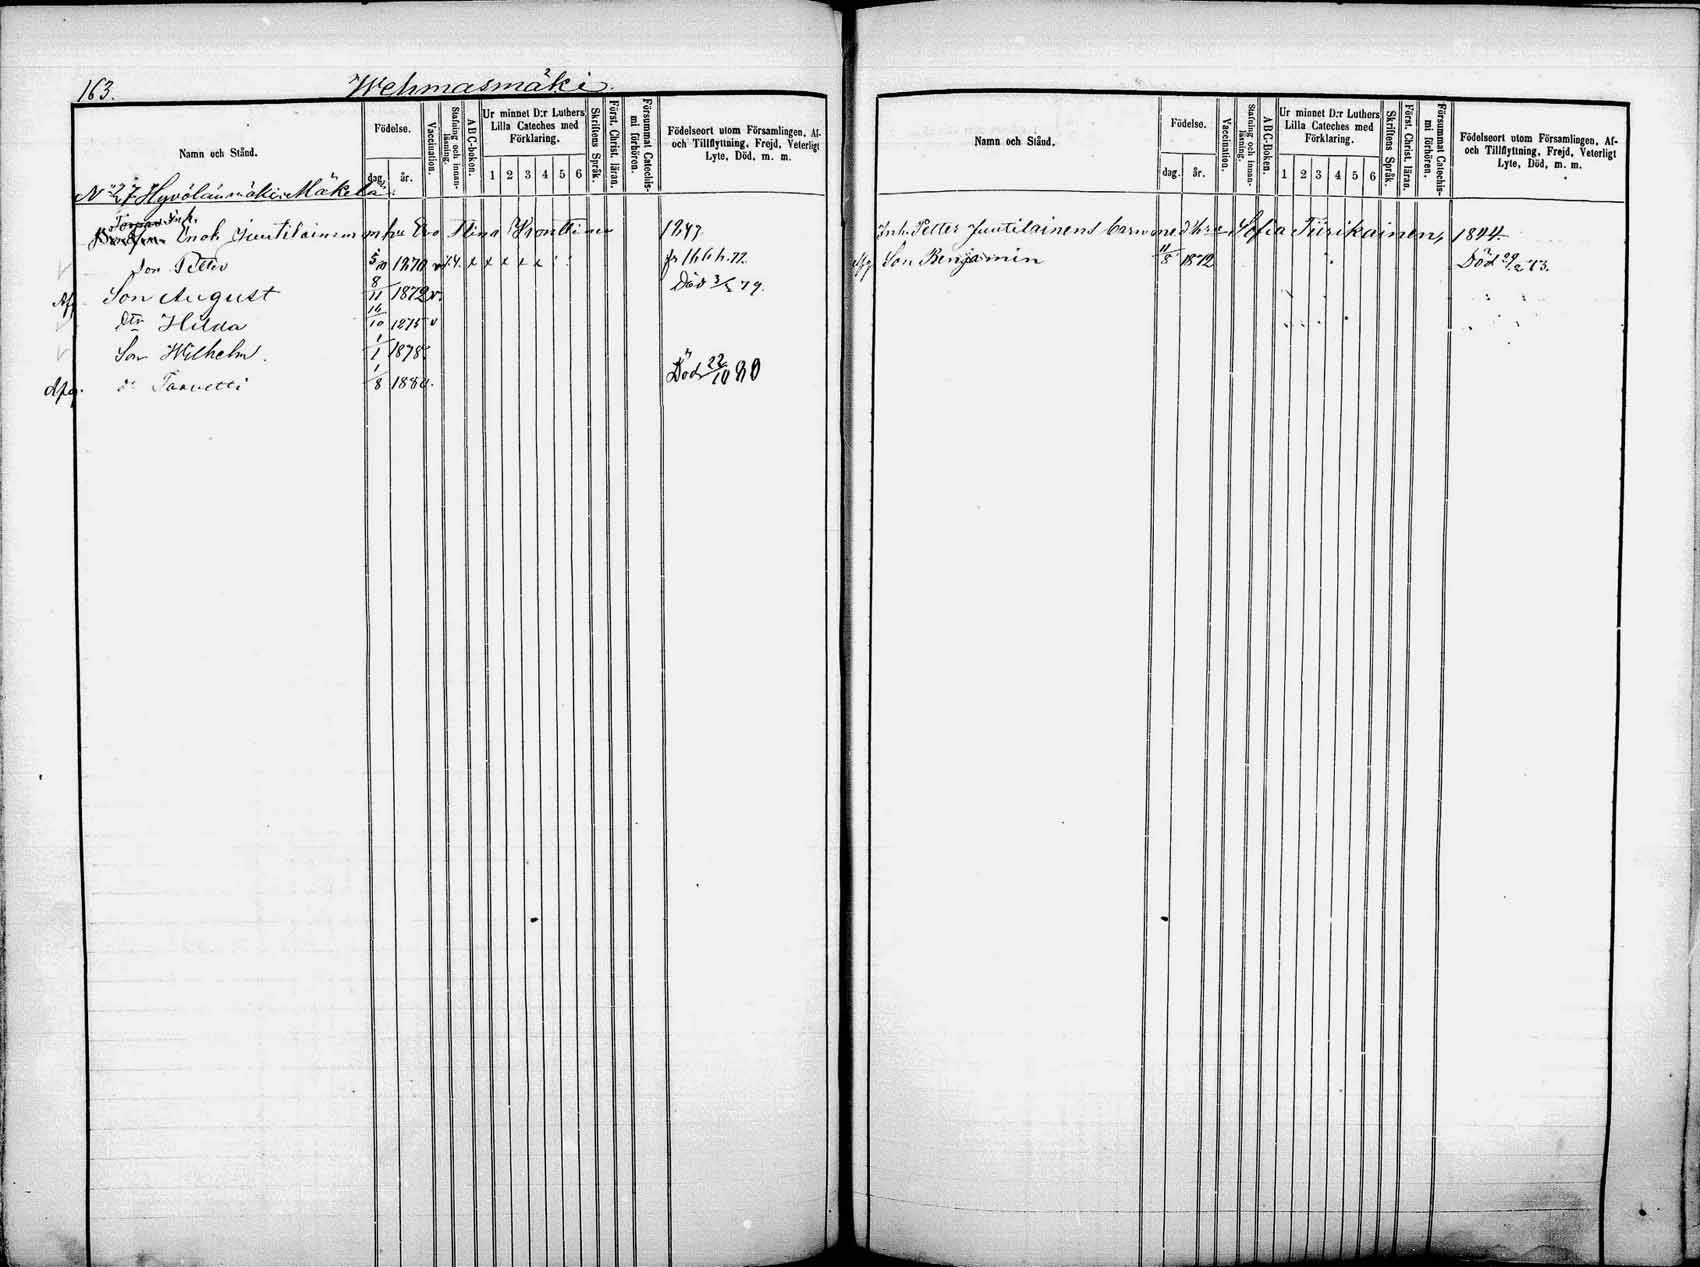 163.
Wehmasmäki.
Namn och Stånd.
Födelse.
dag.
år.
Vaccination.
Stafning och innanläsning.
ABC-boken.
Ur minnet D:r Luthers Lilla Cateches med Förklaring.
1 2 3 4 5 6
Skriftens Språk.
Först. Christ. läran.
Försummat Catechismi förhören.
Födelseort utom Församlingen, Af- och Tillflyttning, Frejd, Veterligt Lyte, Död, m. m.
N:o 27 Hyvölänmäki Mäkelä
Enok Juutilainen m hu Eva Stina Konttinen 1847
Son Petter 5/10 1870 v x x x x x
Son August 8/11 1872 v. Död 79.
Dtr Hilda 16/10 1875 v
Son Wilhelm. 1/1 1878.
d:o Taavetti 1/8 1880. Död 22/10 80
Namn och Stånd.
Födelse.
dag.
år.
Vaccination.
Stafning och innanläsning.
ABC-boken.
Ur minnet D:r Luthers Lilla Cateches med Förklaring.
1 2 3 4 5 6
Skriftens Språk.
Först. Christ. läran.
Försummat Catechismi förhören.
Födelseort utom Församlingen, Af- och Tillflyttning, Frejd, Veterligt Lyte, Död, m. m.
Inh. Petter Juutilainens barn med h:u Sofia Tiirikainen, 1844.
Son Benjamin 11/8 1872 Död 73.